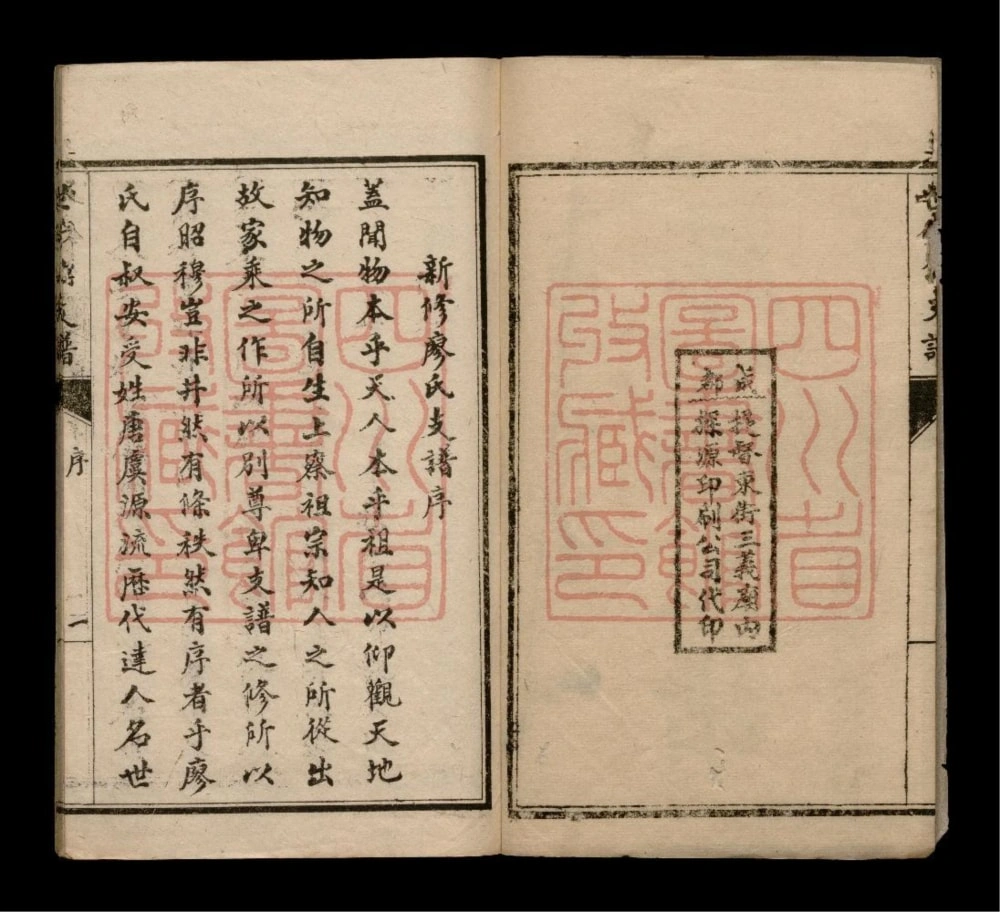 成都
提督東街三義廟內
探源印刷公司代印
四川省
圖書館
收藏印
新修廖氏支譜序
蓋聞物本乎天人本乎祖是以仰觀天地
知物之所自生上察祖宗知人之所從出
故家乘之作所以別尊卑支譜之修所以
序昭穆豈非井然有條秩然有序者乎廖
氏自叔安受姓唐虞源流歷代達人名世
四川省
圖書館
收藏印
支譜
序
二